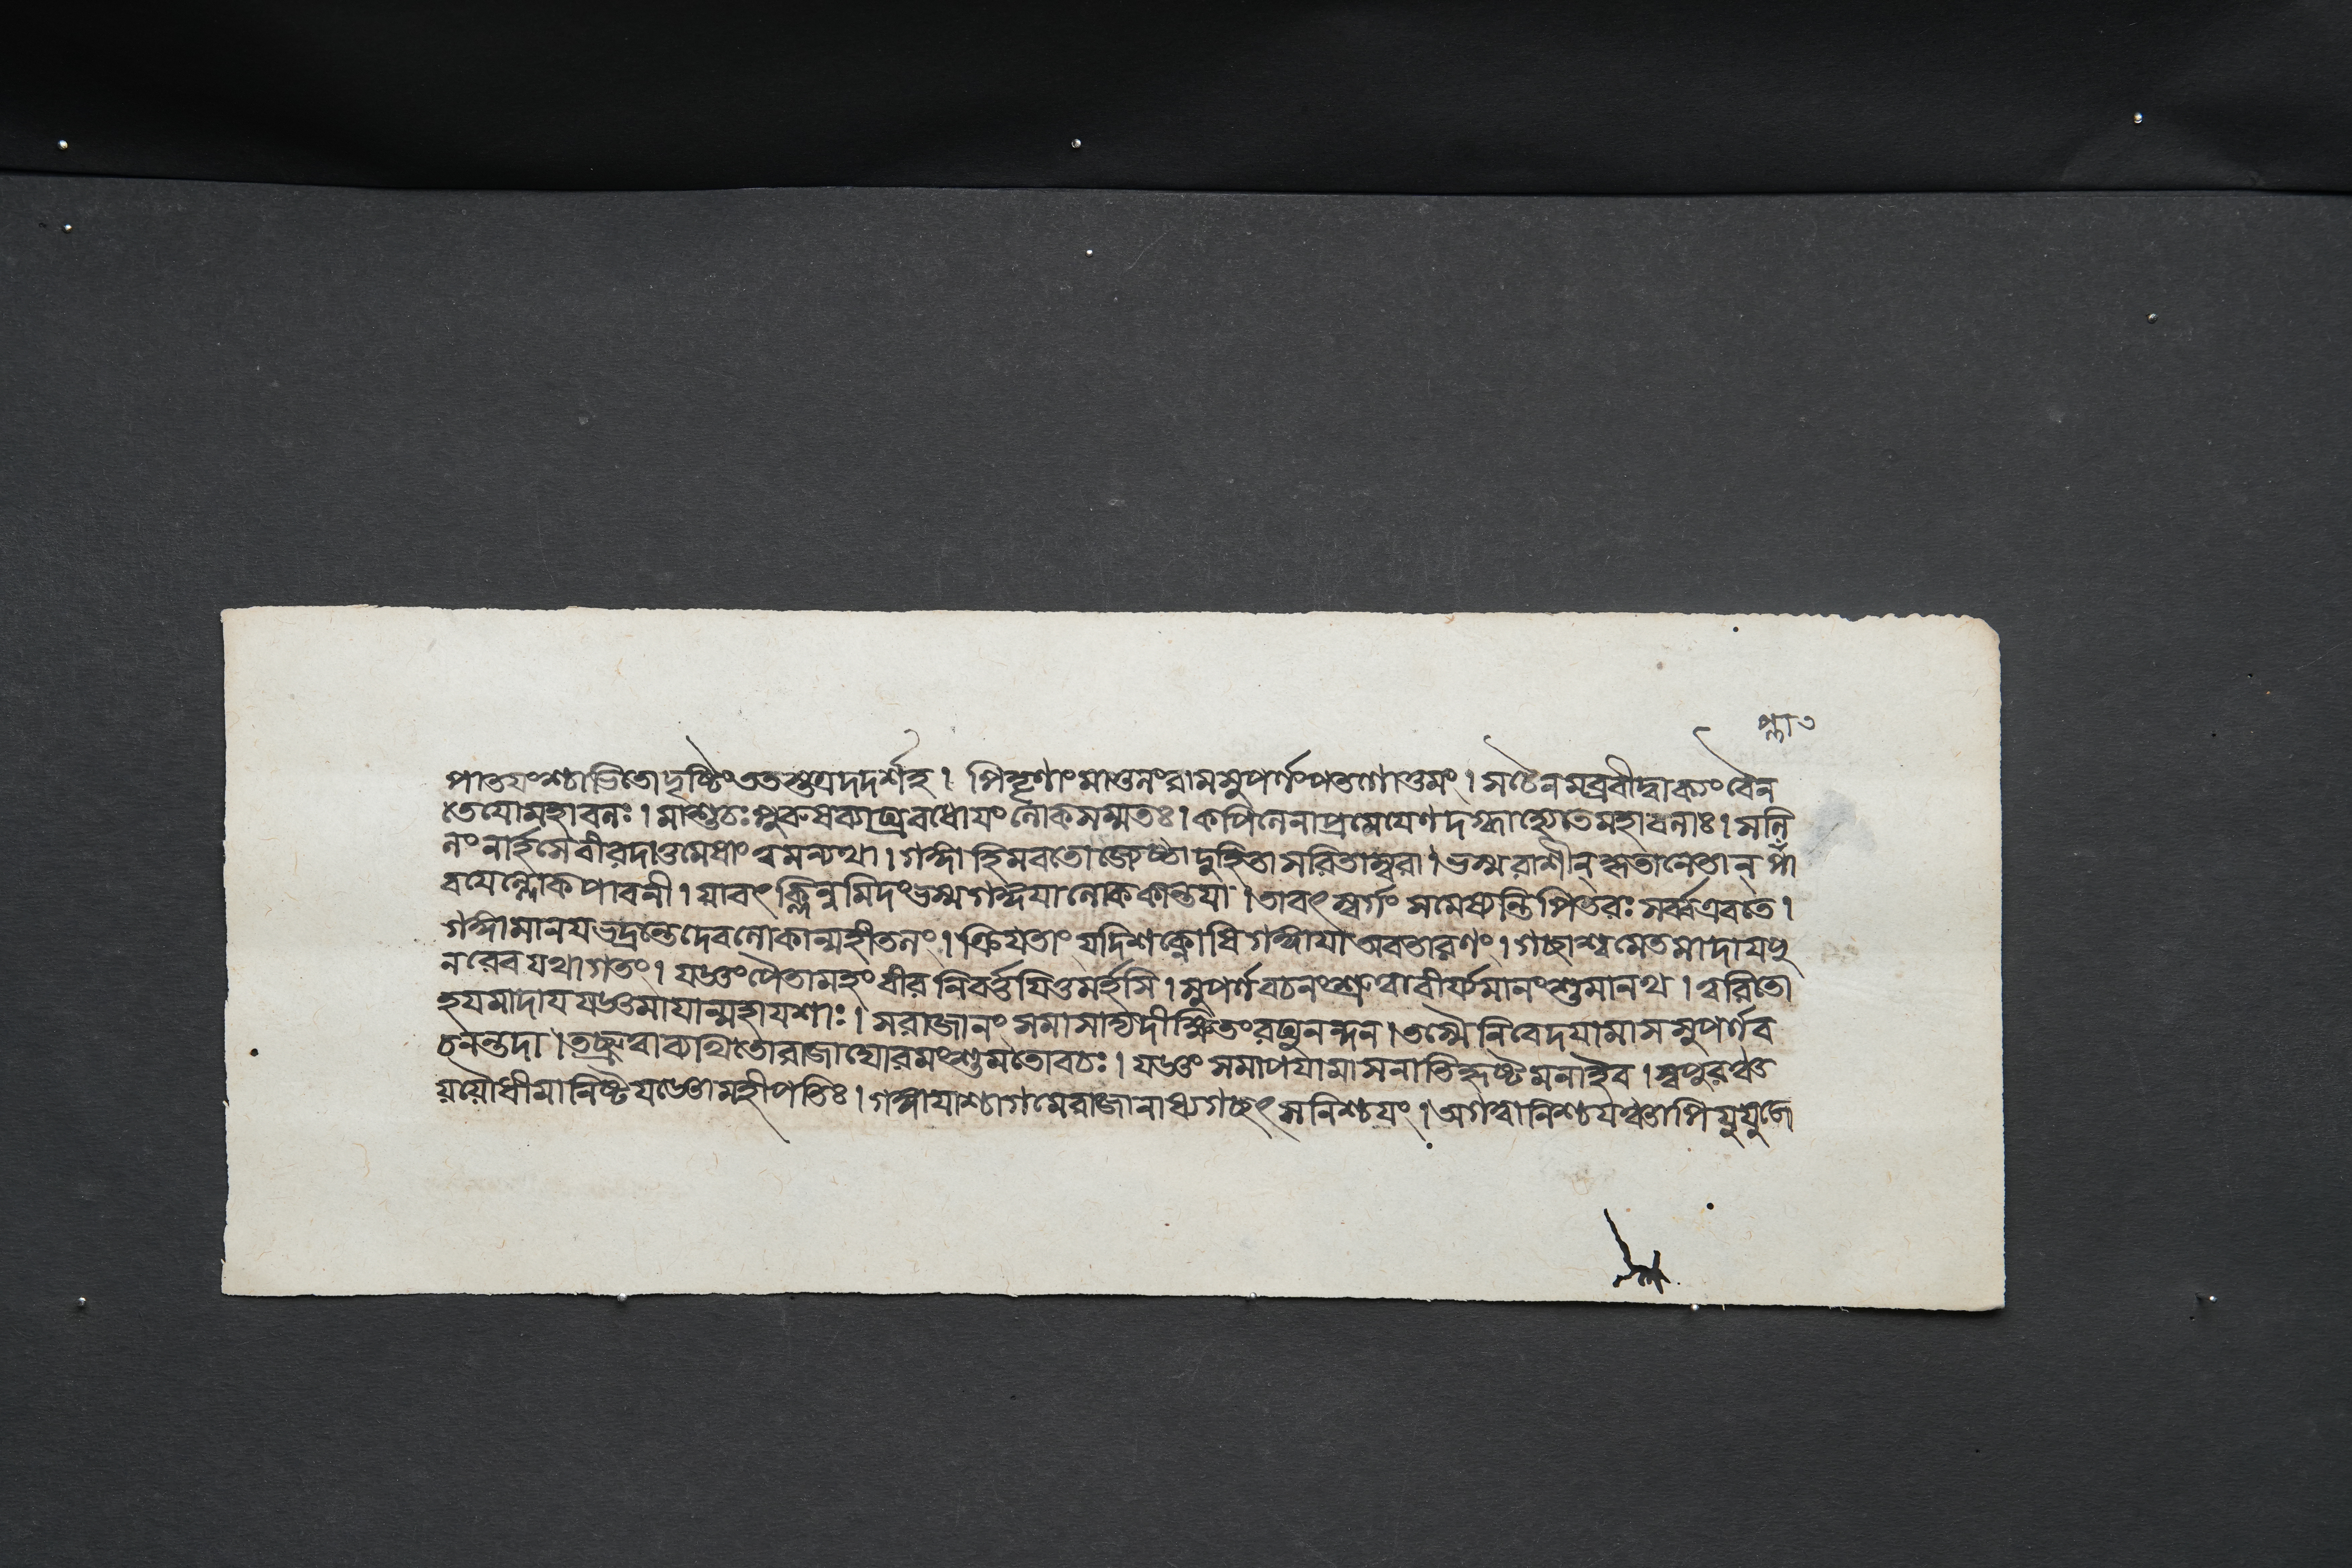 প্লা ৩
পাতযংশ্চাভিতোদৃষ্টিংততস্তত্রদদর্শহ। পিতৄণাংমাতুলংরামসুপর্ণংপতগোত্তমং। সচৈনমব্রবীদ্বাক্যংবৈন
তেযোমহাবলঃ। মাশুচঃপুরুষব্যাঘ্রবধোযংলোকসম্মতঃ। কপিলেনাপ্রমেযেণদগ্ধাহ্যেতেমহাবলাঃ। সলি
লংনার্হসেবীরদাতুমেষাংত্বমন্যথা। গঙ্গাহিমবতোজ্যেষ্ঠাদুহিতাসরিতাম্বরা। ভস্মরাশীন্কৃতানেতান্
বযেল্লোকপাবনী। যাবৎক্লিন্নমিদংভস্মগঙ্গযালোককান্তযা। তাবৎস্বর্গংসমেষ্যন্তিপিতরঃসর্ব্বএবতে।
গঙ্গামানযভদ্রন্তেদেবলোকান্মহীতলং। ক্রিযতাংযদিশক্নোষিগঙ্গাযাঅবতারণং। গচ্ছাশ্বমেতমাদাযপু
নরেবযথাগতং। যজ্ঞংপৈতামহংবীরনিবর্ত্তযিতুমর্হসি। সুপর্ণবচনংশ্রুত্বাবীর্য্যমানংশুমানথ। ত্বরিতো
হযমাদাযযজ্ঞমাযান্মহাযশাঃ। সরাজানংসমাসাদ্যদীক্ষিতংরঘুনন্দন। তস্মৈনিবেদযামাসসুপর্ণব
চনন্তদা। তচ্ছ্রুত্বাব্যথিতোরাজাঘোরমংশুমতোবচঃ। যজ্ঞংসমাপযামাসনাতিহৃষ্টমনাইব। স্বপুরঞ্চত
যযৌধীমানিষ্টযজ্ঞোমহীপতিঃ। গঙ্গাযাশ্চাগমেরাজানাধ্যগচ্ছৎসনিশ্চযং। অগত্বানিশ্চযঞ্চাপি